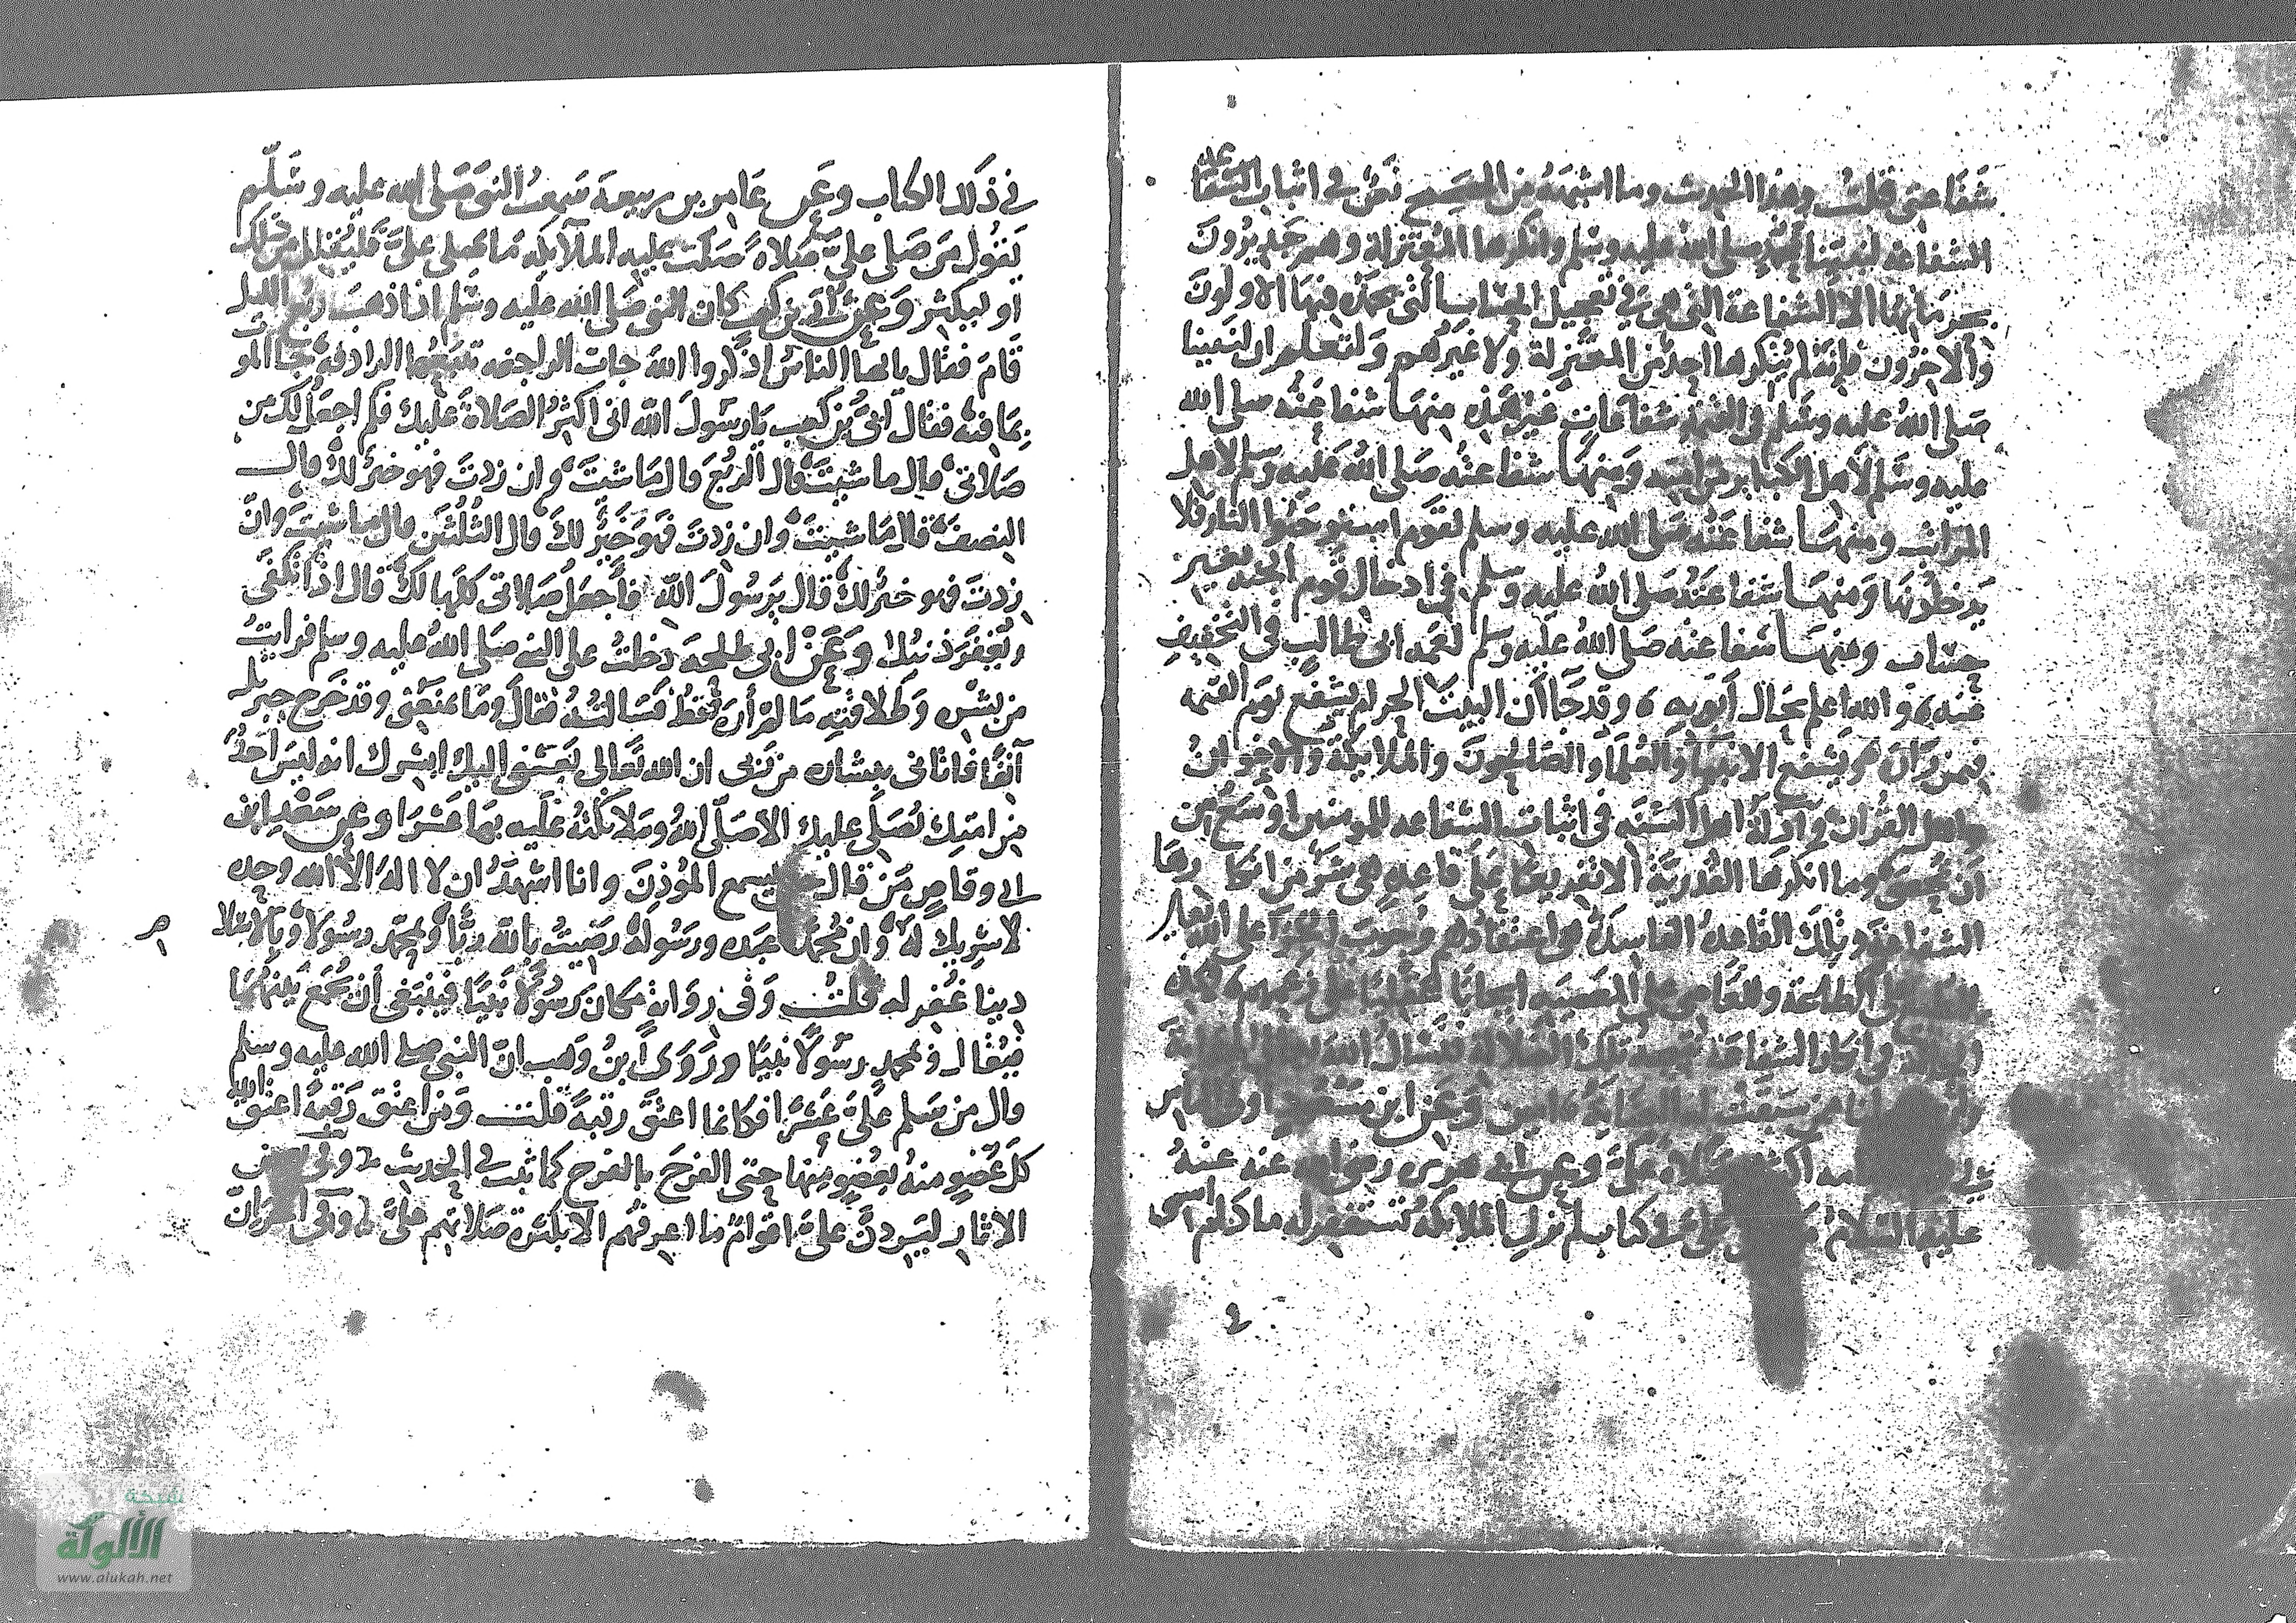 شفاعتى قلت وهذا الحديث وما اشبهه من الصحيح نص فى اثبات الشفا
الشفاعة لنبينا محمد صلى الله عليه وسلم وانكرها المعتزلة وهم جديرون
بحرمانها الا الشفاعة التى هى فى تعجيل الحساب التى يحمده فيها الاولون
والاخرون فانه لم ينكرها احد من المعتزلة ولا غيرهم ولتعلم ان لنبينا
صلى الله عليه وسلم فى القيمه شفاعات غير هذه منها شفاعته صلى الله
عليه وسلم لاهل الكباير من امته ومنها شفاعته صلى الله عليه وسلم لاهل
المراتب ومنها شفاعته صلى الله عليه وسلم لقوم استوجبوا النار فلا
يدخلونها ومنها شفاعته صلى الله عليه وسلم فى ادخال قوم الجنه بغير
حساب ومنها شفاعته صلى الله عليه وسلم لعمه ابى طالب فى التخفيف
عنه والله اعلم بحال ابويه وقد جا ان البيت الحرام يشفع يوم القيمه
فيمن زاره ويشفع الانبيا والعلما والصالحون والملايكة والاخوان
واهل القران وادلة اهل السنه فى اثبات الشفاعه للمومنين اوسع من
ان تحصى وما انكرها القدرية الا تفريعا على قاعدة هى شر من انكارها
الشفاعة وتلك القاعدة الفاسدة هى اعتقادهم وجوب الجزا على الله تعالى
على الطاعة وللعاصى على المعصيه ايجابا عقليا على زعمهم
وانكار الشفاعة تلك الضلالة فنسال الله
من سبقت له امين وعن ابن مسعود اولى الناس
صلاة على وعن ابى هريرة رضى الله عنه عنه
عليه السلام من صلى على فى كتاب لم تزل الملايكة تستغفر له ما دام اسمى
فى ذلك الكتاب وعن عامر بن ربيعة سمعت النبى صلى الله عليه وسلم
يقول من صلى على صلاة صلت عليه الملآيكه ما صلى على فليقلل من ذلك
او ليكثر وعن ابى بن كعب كان النبى صلى الله عليه وسلم اذا ذهب ربع الليل
قام فقال يا ايها الناس اذكروا الله جات الراجفه تتبعها الرادفة جا الموت
بما فيه فقال ابى بن كعب يا رسول الله انى اكثر الصلاة عليك فكم اجعل لك من
صلاتى قال ما شيت قال الربع قال ما شيت وان زدت فهو خير لك قال
النصف قال ما شيت وان زدت فهو خير لك قال الثلثين قال ما شيت وان
زدت فهو خير لك قال يرسول الله فاجعل صلاتى كلها لك قال اذا تكفى
ويغفر ذنبك وعن ابى طلحه دخلت على النبى صلى الله عليه وسلم فرايت
من بشره وطلاقته ما لم أره قط فسالته فقال وما يمنعنى وقد خرج جبريل
آنفا فاتانى ببشاره من ربى ان الله تعالى بعثنى اليك ابشرك انه ليس احد
من امتك يصلى عليك الا صلى الله وملائكته عليه بها عشرا وعن سعد ابن
ابى وقاص من قال حين يسمع المؤذن وانا اشهد ان لا اله الا الله وحده
لا شريك له وان محمدا عبده ورسوله رضيت بالله ربا وبمحمد رسولا وبالاسلام
دينا غفر له قلت وفى رواية مكان رسولا نبيا فينبغى ان يجمع بينهما
فيقال وبمحمد رسولا نبيا وروى ابن وهب ان النبى صلى الله عليه وسلم
قال من سلم على عشرا فكانما اعتق رقبة قلت ومن اعتق رقبة اعتق الله
كل عضو منه بعضو منها حتى الفرج بالفرج كما ثبت فى الحديث وفى بعض
الاثار ليردن على اقوام ما اعرفهم الا بكثرة صلاتهم على وفى اخر ان